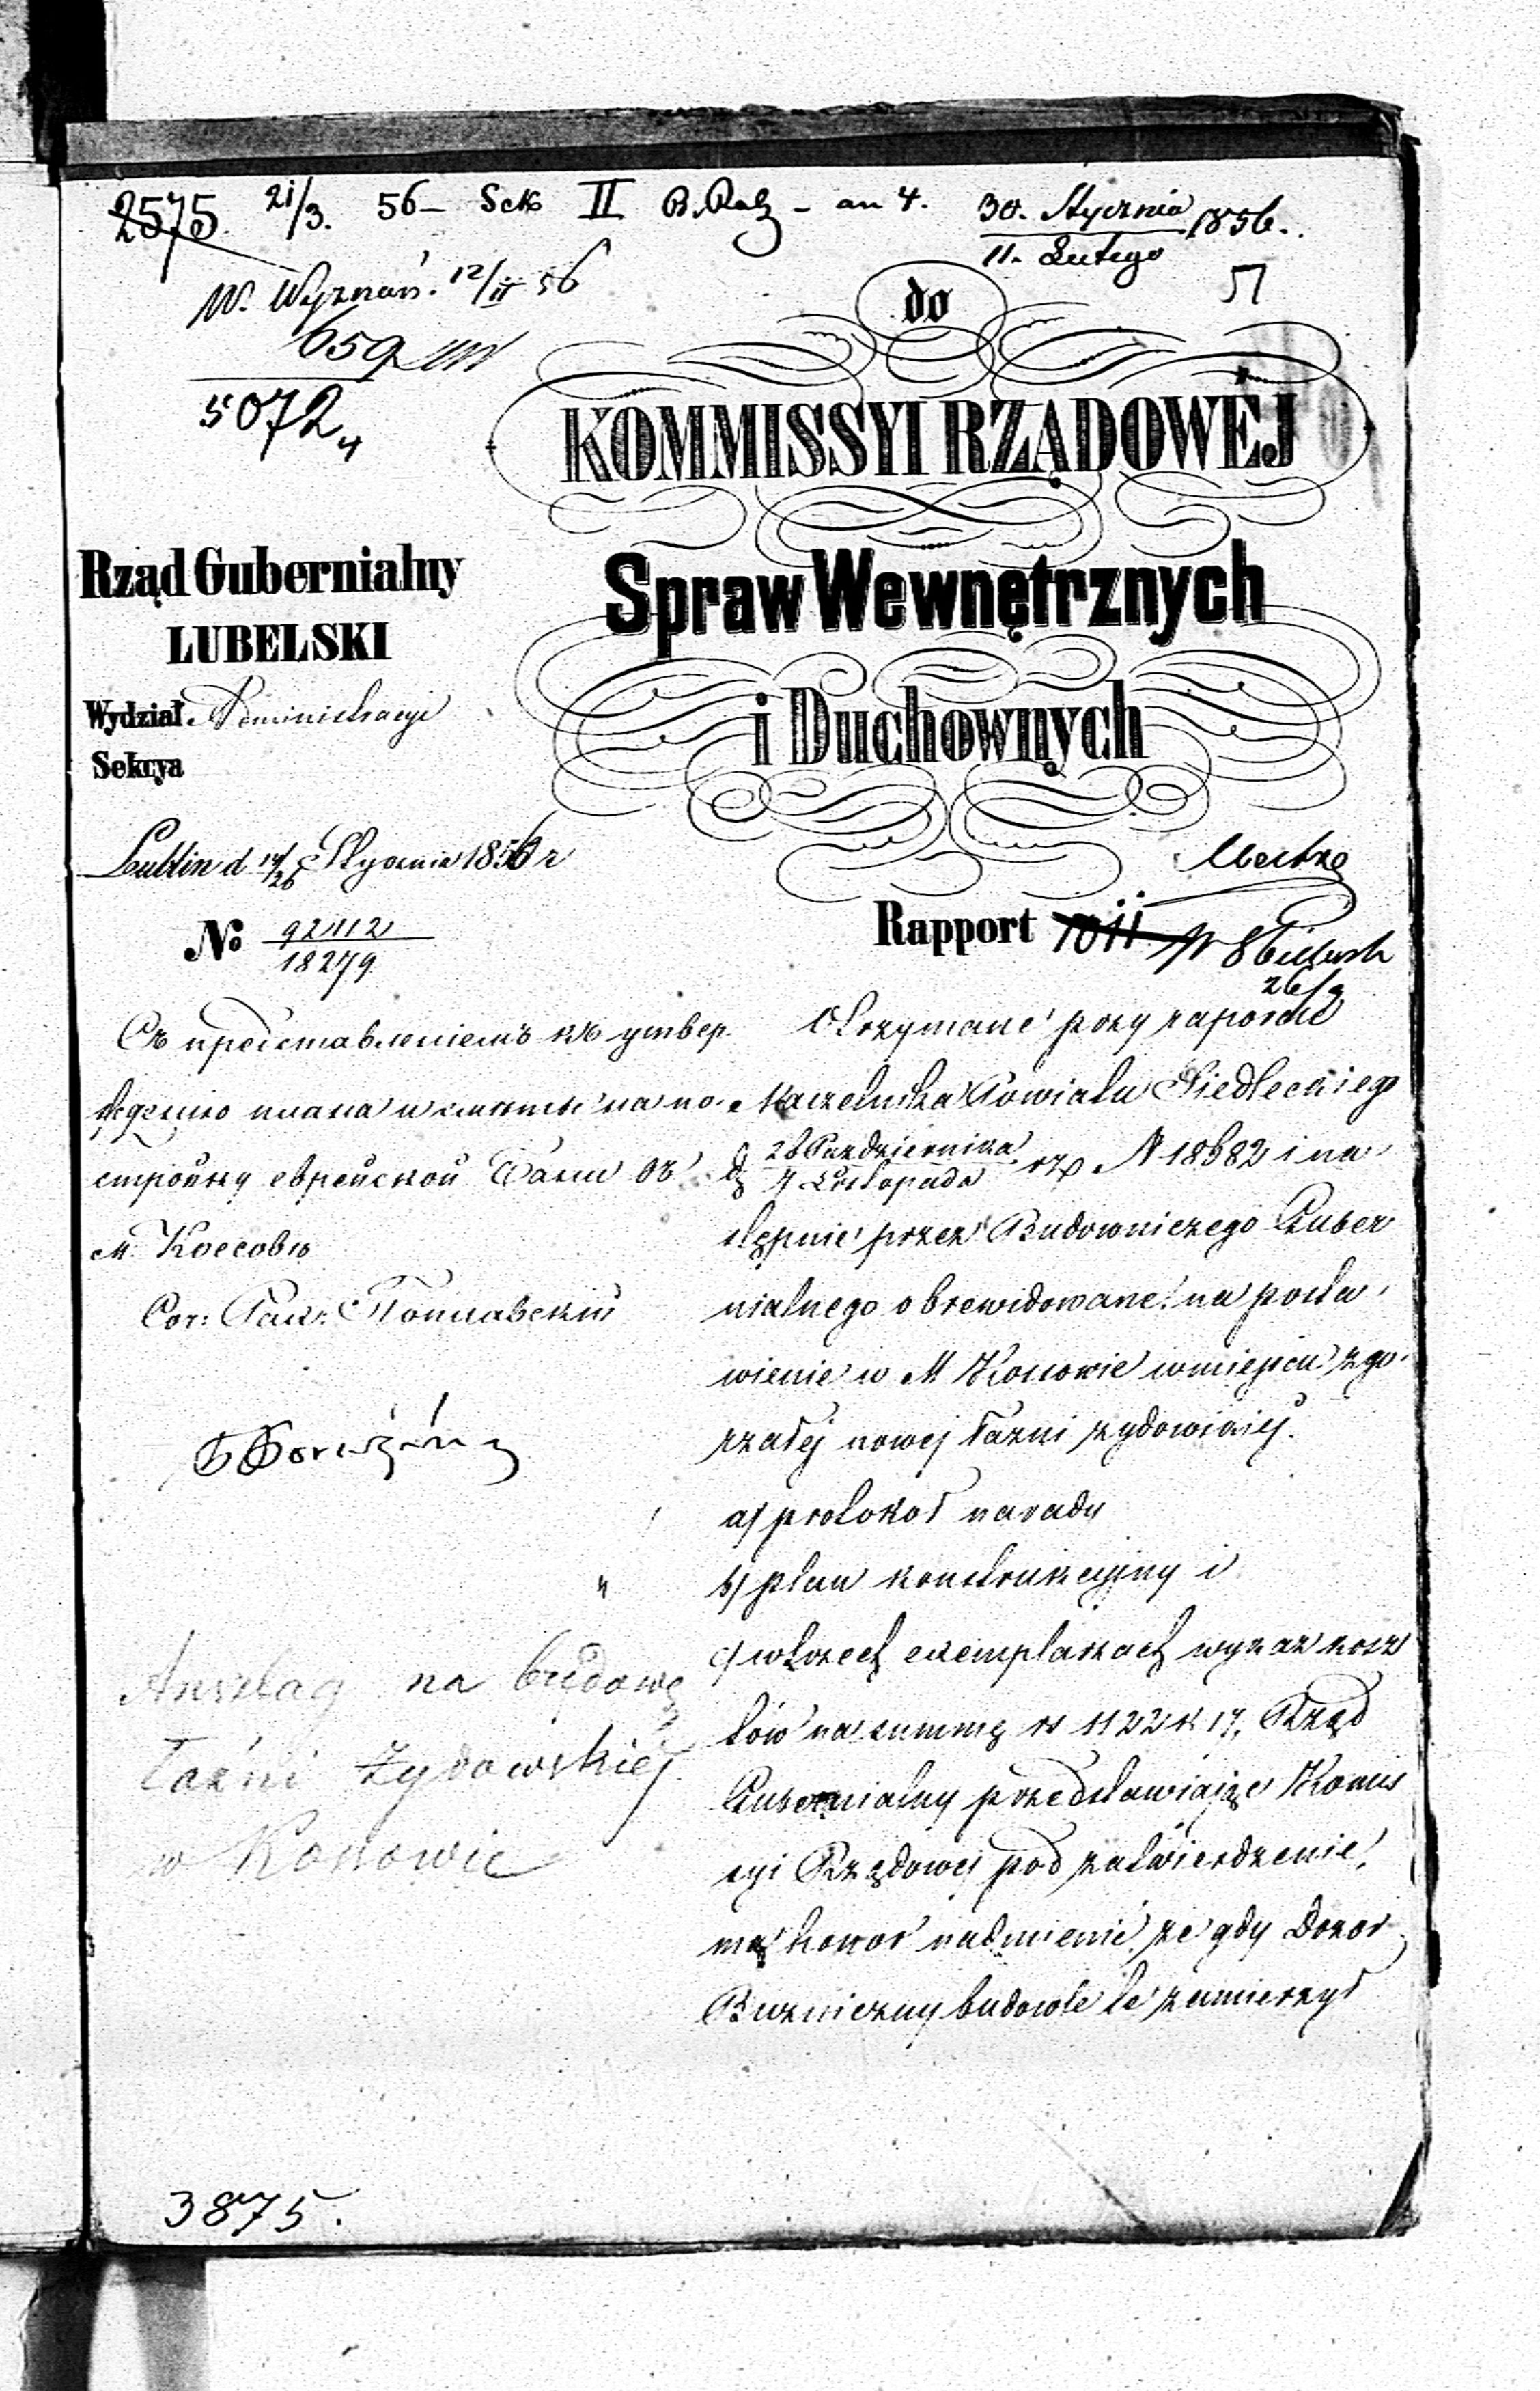 2575. 21/3. 56 – Sek II B. Ralz – an 4. 30. Stycznia 1856.
11. Lutego
W. Wyznań. 12/II 56
51
do
659
5072
KOMMISSYI RZĄDOWÉJ
Rząd Gubernialny
LUBELSKI
Spraw Wewnętrznych
i Duchownych
Wydział Administracyi
Sekcya
Lublin d 14/26 Stycznia 1856 r
№ 92112
18279
Rapport 1011
26/2
Съ представленіемъ къ утвер-
жденію плана и смѣты на по-
стройку еврейской бани въ
м. Коссовѣ
Anszlag na budowę
Łaźni Żydowskiéj
w Kossowie
Otrzymane przy raporcie
Naczelnika Powiatu Siedleckiego
d 28 Października
4 Listopada rz № 18582 i na
stępnie przez Budowniczego Guber
nialnego obrewidowane na posta
wienie w M Kossowie w miejscu zgo
rzałej nowej łaźni żydowskiej.
a) protokoł narady
b) plan konstrukcyjny i
c) w trzech exemplarzach wykaz kosz
tów na summę rs 1122 k 17, Rząd
Gubernialny przedstawiając Komis
syi Rządowej pod zatwierdzenie,
ma honor nadmienić, że gdy Dozor
Bużniczny budowle te zamierzył
3875.